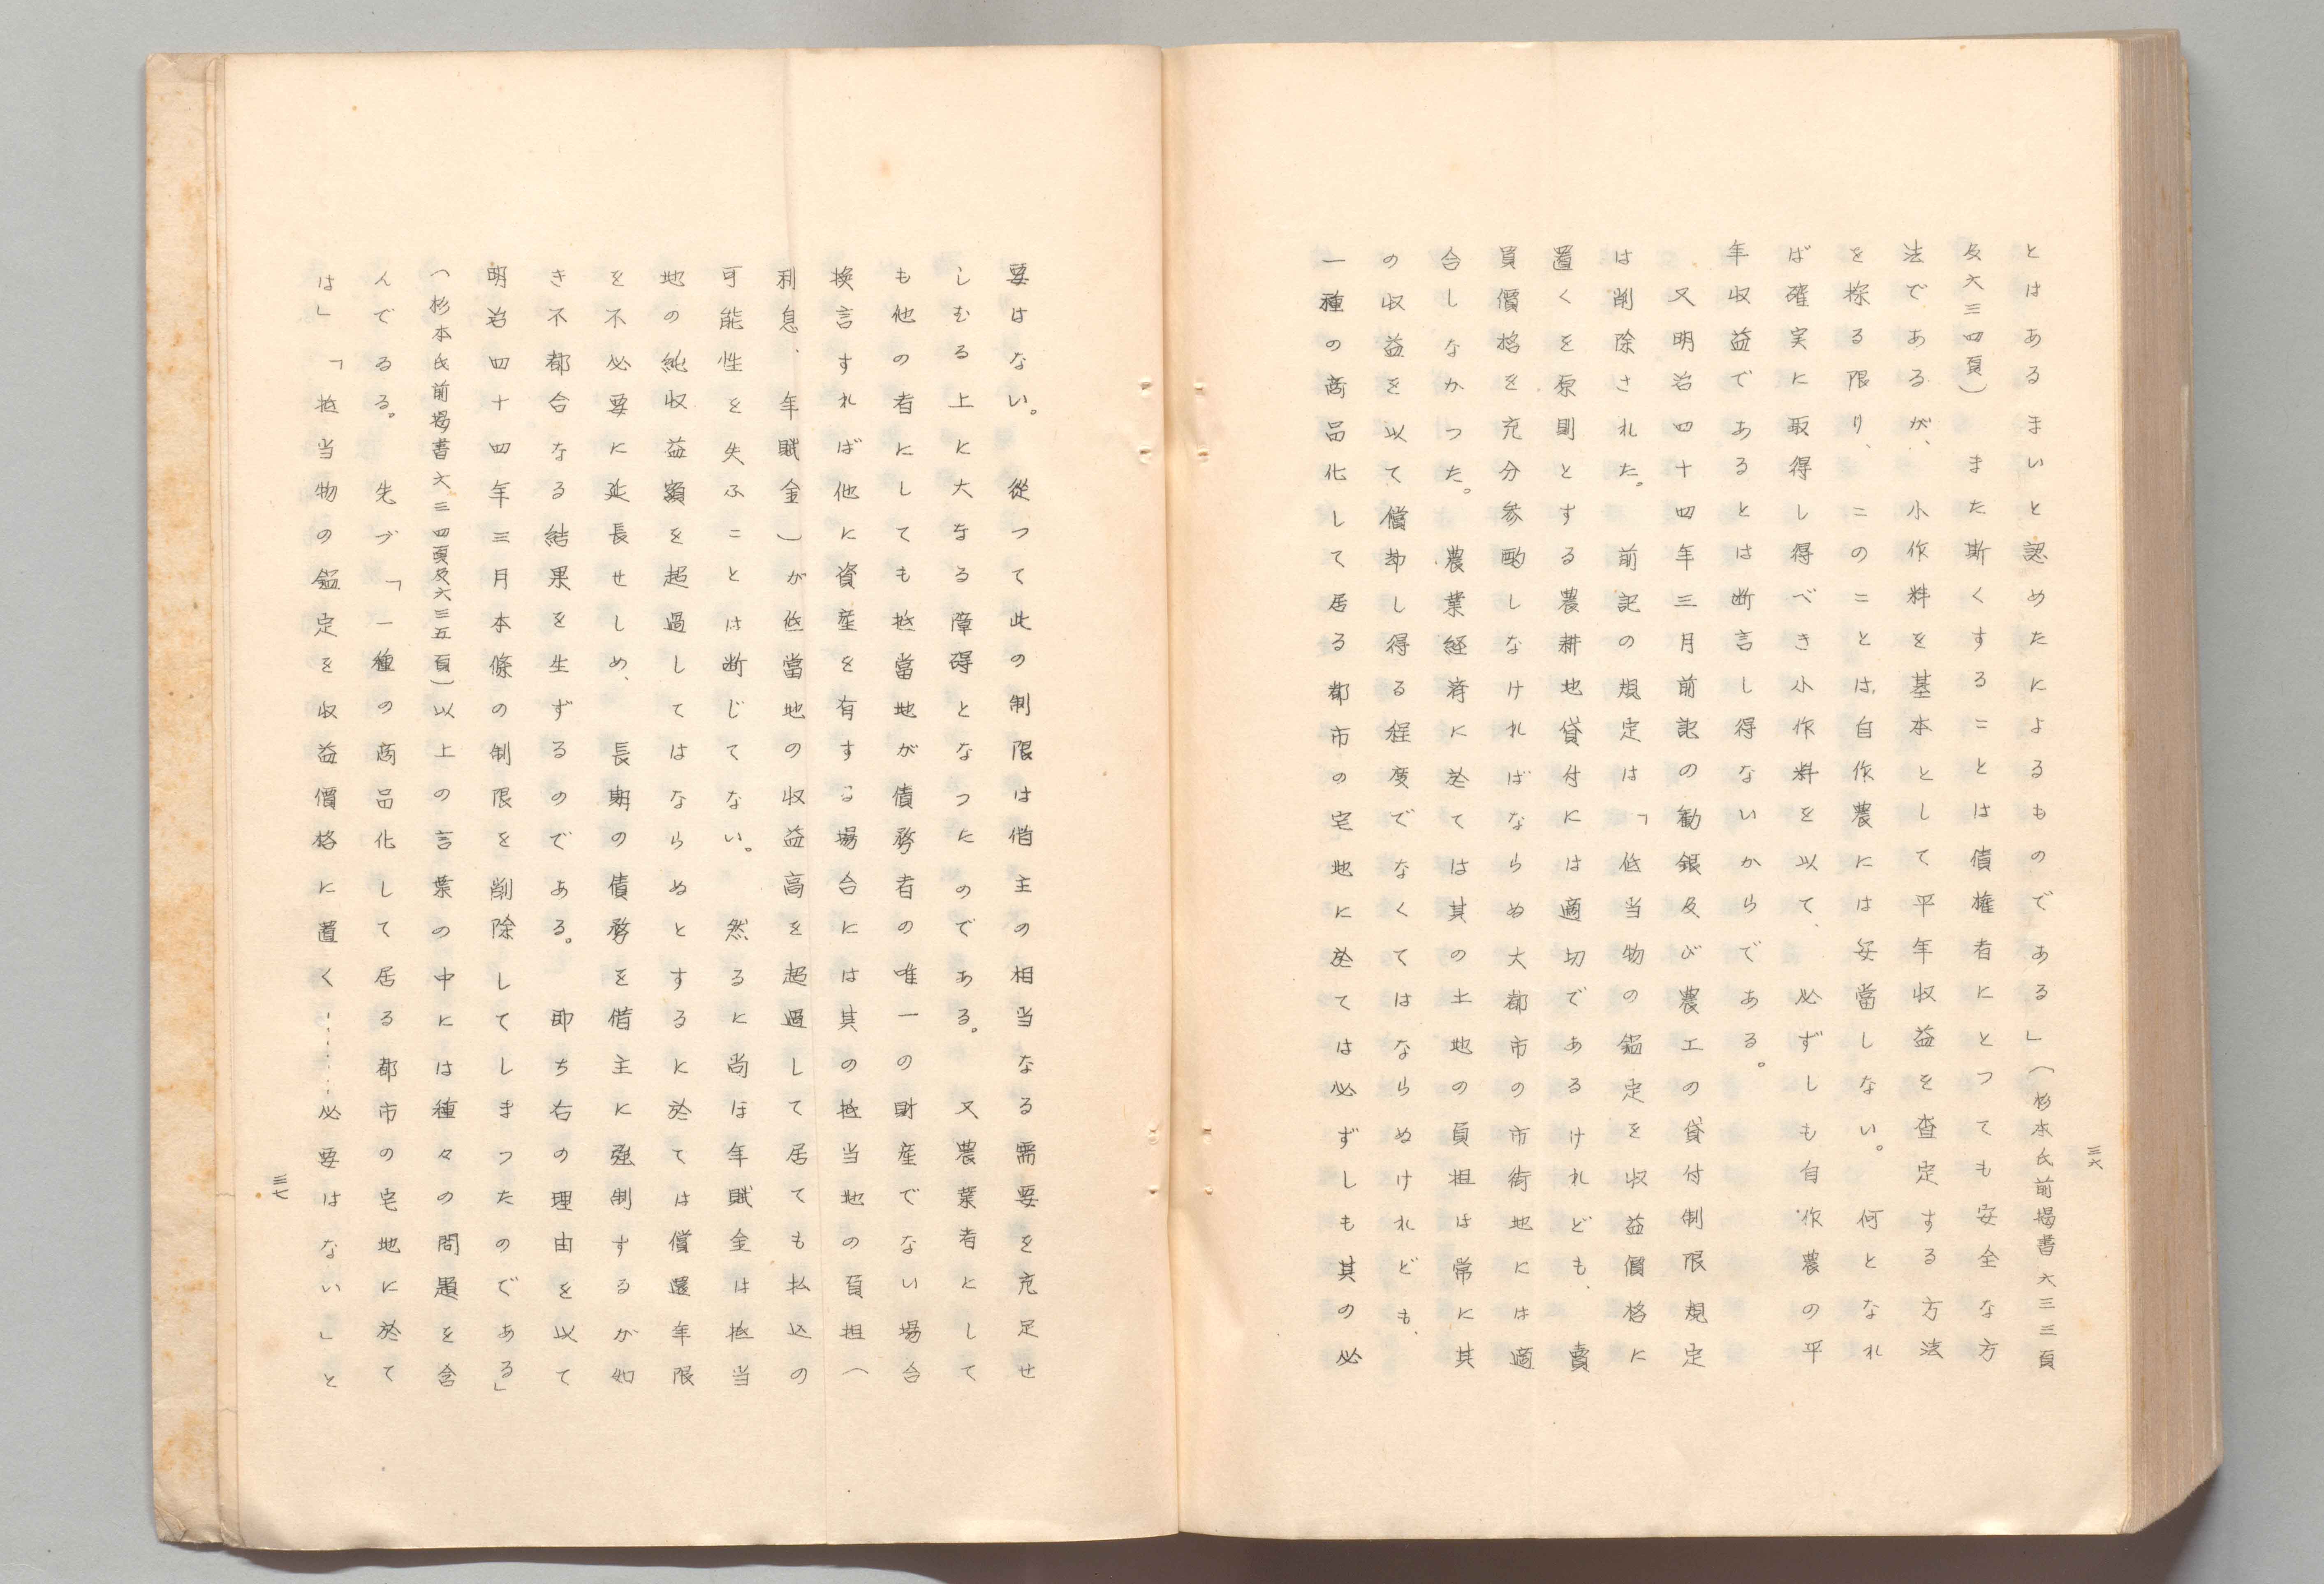 とはあるまいと認めたによるものである」（杉本氏前掲書六三三頁
及六三四頁）　また斯くすることは債権者にとつても安全な方
法であるが、小作料を基本として平年収益を査定する方法
を採る限り、このことは自作農には妥當しない。何となれ
ば確実に取得し得べき小作料を以て、必ずしも自作農の平
年収益であるとは断言し得ないからである。
又明治四十四年三月前記の勧銀及び農工の貸付制限規定
は削除された。前記の規定は「低当物の鑑定を収益價格に
置くを原則とする農耕地貸付には適切であるけれども、賣
買價格を充分参酌しなければならぬ大都市の市街地には適
合しなかつた。農業経済に於ては其の土地の負担は常に其
の収益を以て償却し得る程度でなくてはならぬけれども、
一種の商品化して居る都市の宅地に於ては必ずしも其の必
三六
要はない。従つて此の制限は借主の相当なる需要を充足せ
しむる上に大なる障碍となつたのである。又農業者にして
も他の者にしても抵當地が債務者の唯一の財産でない場合
換言すれば他に資産を有する場合には其の抵当地の負担（
利息、年賦金）が低當地の収益高を超過して居ても払込の
可能性を失ふことは断じてない。然るに尚ほ年賦金は抵当
地の純収益額を超過してはならぬとするに於ては償還年限
を不必要に延長せしめ、長期の債務を借主に強制するが如
き不都合なる結果を生ずるのである。即ち右の理由を以て
明治四十四年三月本條の制限を削除してしまつたのである」
（杉本氏前掲書六三四頁及六三五頁）以上の言葉の中には種々の問題を含
んでゐる。先づ「一種の商品化して居る都市の宅地に於て
は」「抵当物の鑑定を収益價格に置く……必要はない」と
三七